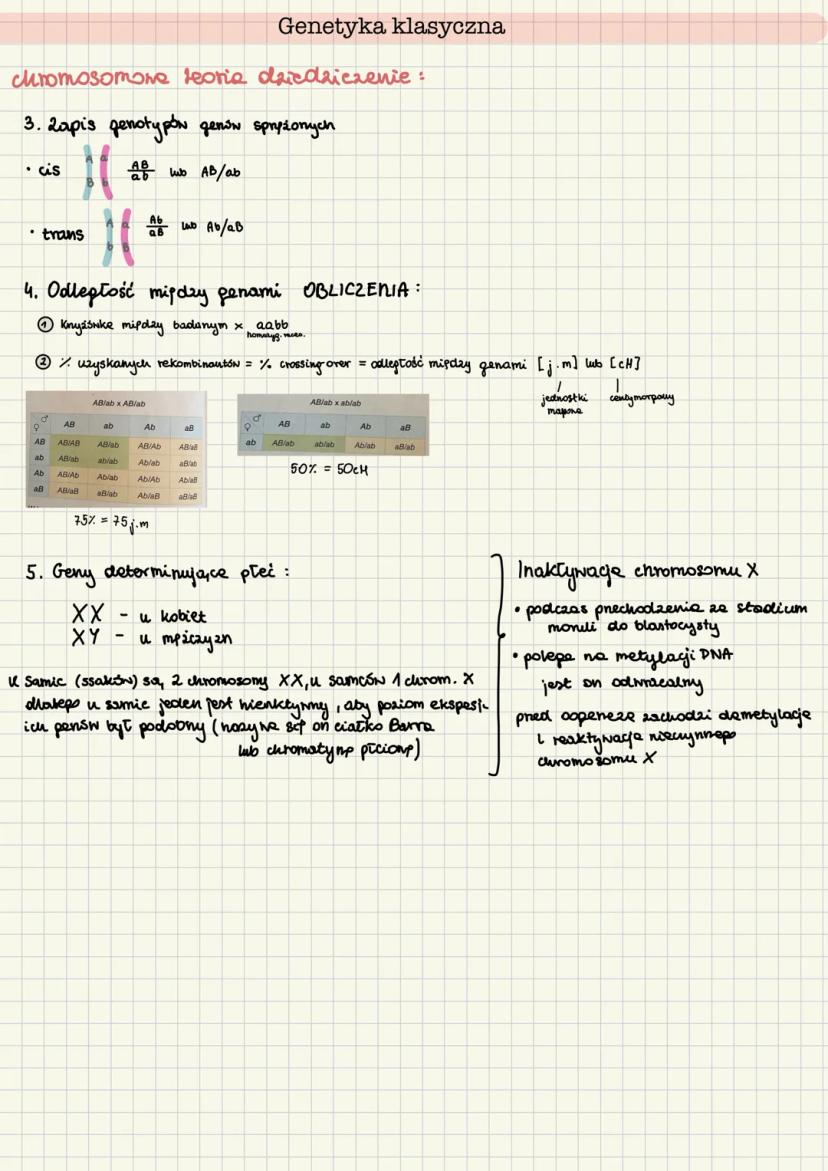 Genetyka klasyczna
chromosomowa teoria dziedziczenie :
3. Zapis genotypów genów sprzężonych
• cis
A a
B b
AB
ab
lub AB/ab
• trans
A a
b B
Ab
aB
lub Ab/aB
4. Odległość między genami OBLICZENIA :
① Krzyżówka między badanym x aabb
homozyg. reces.
② % uzyskanych rekombinantów = % crossing over = odległość między genami [j.m] lub [cM]
jednostki centymorgany
mapowe
AB/ab x AB/ab
♀ ♂ AB ab Ab aB
AB AB/AB AB/ab AB/Ab AB/aB
ab AB/ab ab/ab Ab/ab aB/ab
Ab AB/Ab Ab/ab Ab/Ab Ab/aB
aB AB/aB aB/ab Ab/aB aB/aB
75% = 75 j.m
AB/ab x ab/ab
♀ ♂ AB ab Ab aB
ab AB/ab ab/ab Ab/ab aB/ab
50% = 50cM
5. Geny determinujące płeć :
XX - u kobiet
XY - u mężczyzn
U samic (ssaków) są 2 chromosomy XX, u samców 1 chrom. X
dlatego u samic jeden jest nieaktywny, aby poziom ekspesji
ich genów był podobny (nazywa się on ciałko Barra
lub chromatyną płciową)
Inaktywacja chromosomu X
• podczas przechodzenia ze stadium
moruli do blastocysty
• polega na metylacji DNA
jest on odwracalny
przed oogenezą zachodzi demetylacja
i reaktywacja nieczynnego
chromosomu X